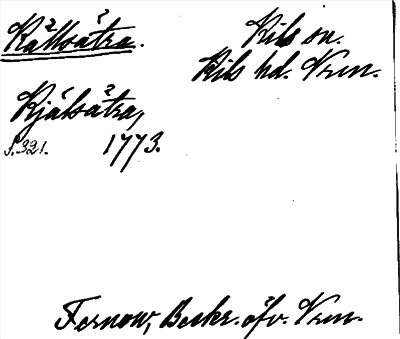 Källsätra.
Kils sn.
Kils hd. Vrm.
Kjälsätra,
s. 321. 1773.
Fernow, Beskr. öfv. Vrm.